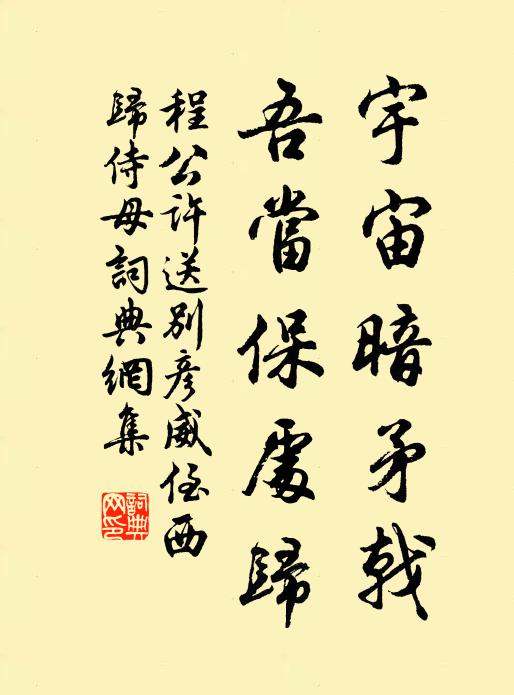 宇宙暗矛戟
吾當保處歸
程公許送別彥威侄西
歸侍母詞典網集
詞典
网印